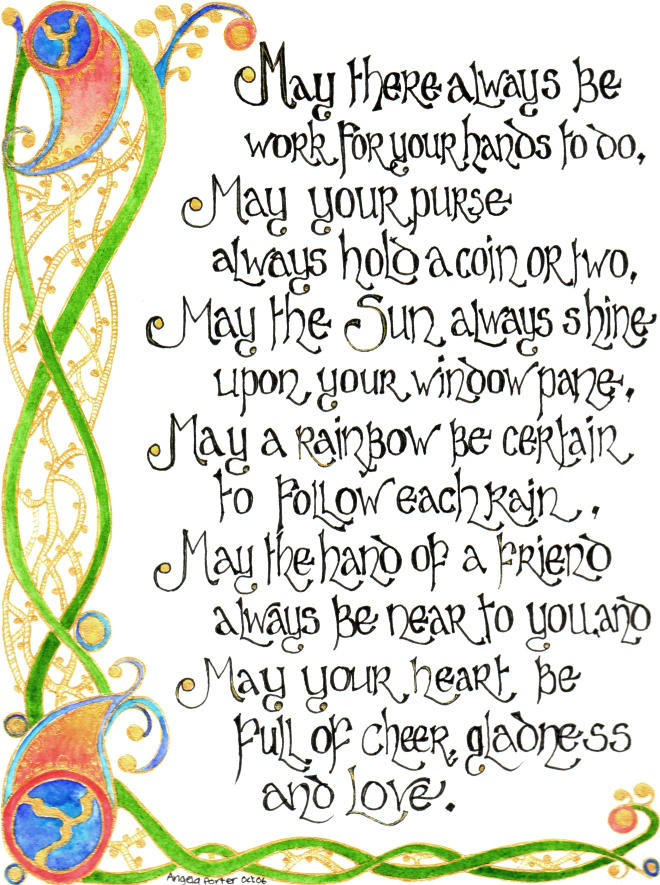 May there always be
work for your hands to do,
May your purse
always hold a coin or two,
May the Sun always shine
upon your window pane,
May a rainbow be certain
to follow each rain,
May the hand of a friend
always be near to you, and
May your heart be
full of cheer, gladness
and love.
Angela Porter Oct 06